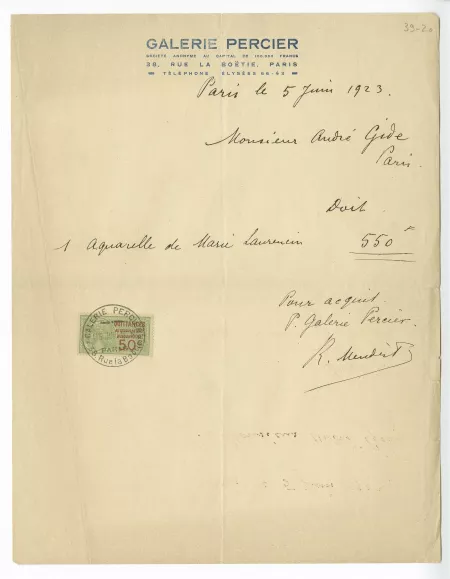 39-20
GALERIE PERCIER
SOCIÉTÉ ANONYME AU CAPITAL DE 100.000 FRANCS
38, RUE LA BOËTIE, PARIS
TÉLÉPHONE ELYSÉES
Paris le 5 Juin 1923.
Monsieur André Gide
Paris.
Doit
1 Aquarelle de Marie Laurencin 550 F
Pour acquit
P. Galerie Percier
GALERIE PERCIER
QUITTANCES
50
PARIS